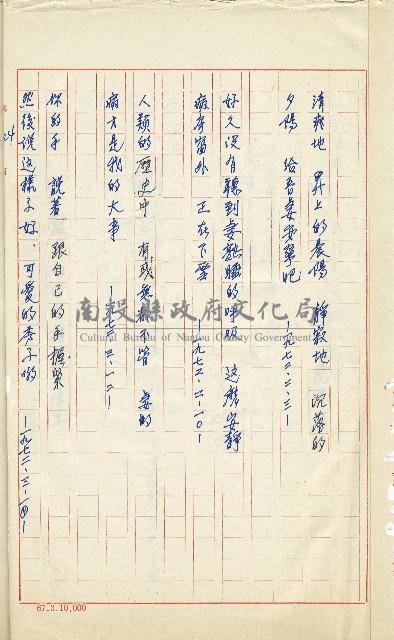 清爽地　昇上的晨陽　靜寂地　沉落的
夕陽　給吾妻第幾吧
—一九七二·二·三—
好久沒有聽到妻熟睡的呼吸　這麼安靜
病房窗外　正在下雪
—一九七二·二·一〇—
人類的歷史中　有或無都不管　妻的
病才是我的大事
—一九七二·三·一二—
你的手　說著　跟自己的手握緊
然後說這樣子好、可愛的孝子喲
—一九七二·三·一四—
24
南投縣政府文化局
Cultural Bureau of Nantou County Government
67.3.10,000